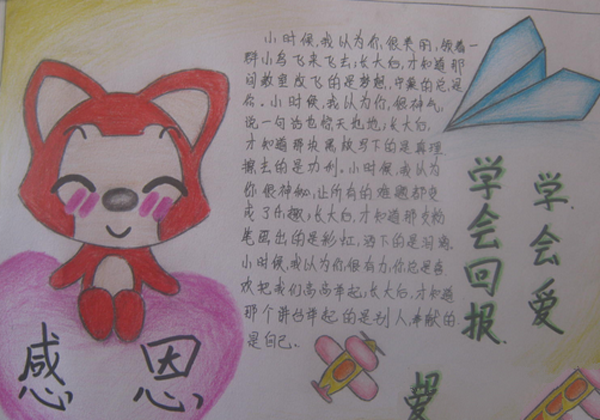 小时候,我认为你,很美丽,领着一
群小鸟飞来飞去;长大后,才知道那
间教室放飞的是梦想,守巢的总是
你。小时候,我认为你,很神气,
说一句话也惊天动地;长大后,
才知道那块黑板写下的是真理
擦去的是功利。小时候,我认为
你很神秘,让所有的难题都变
成了乐趣;长大后,才知道那支粉
笔画出的是彩虹,洒下的是泪滴。
小时候,我认为你,很有力,你总是喜
欢把我们高高举起;长大后,才知道
那个讲台举起的是别人,奉献的
是自己。
学会回报
学会爱
感恩
爱